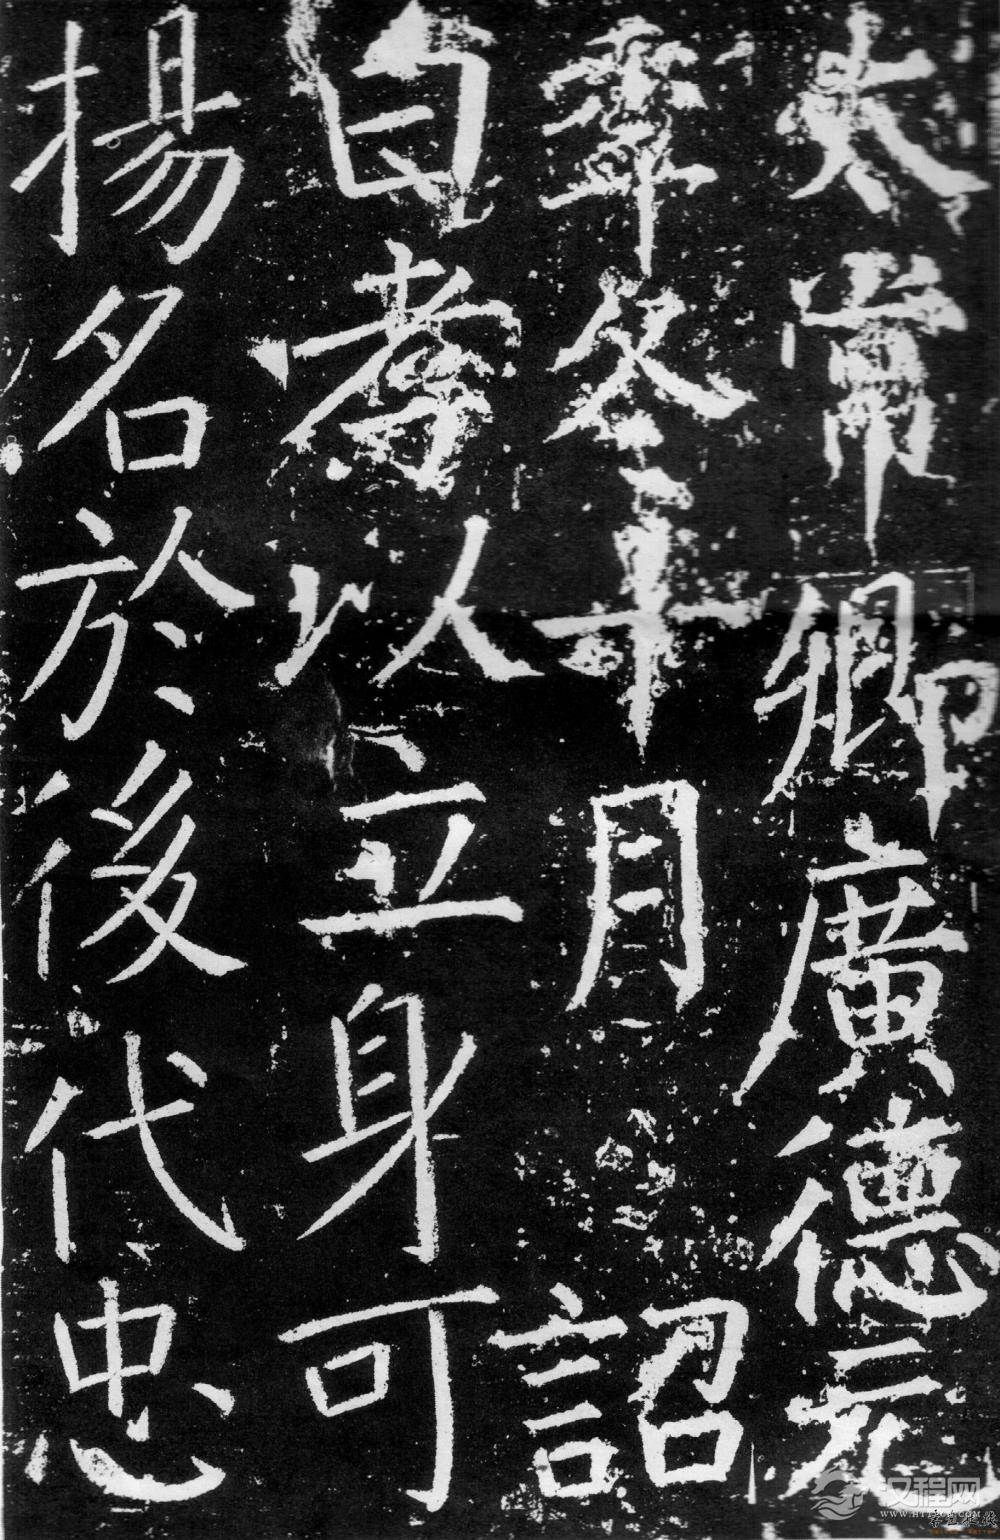 太常卿廣德元
年冬十月詔
曰孝以立身可
揚名於後代忠
汉程网
WWW.HTTPCN.COM